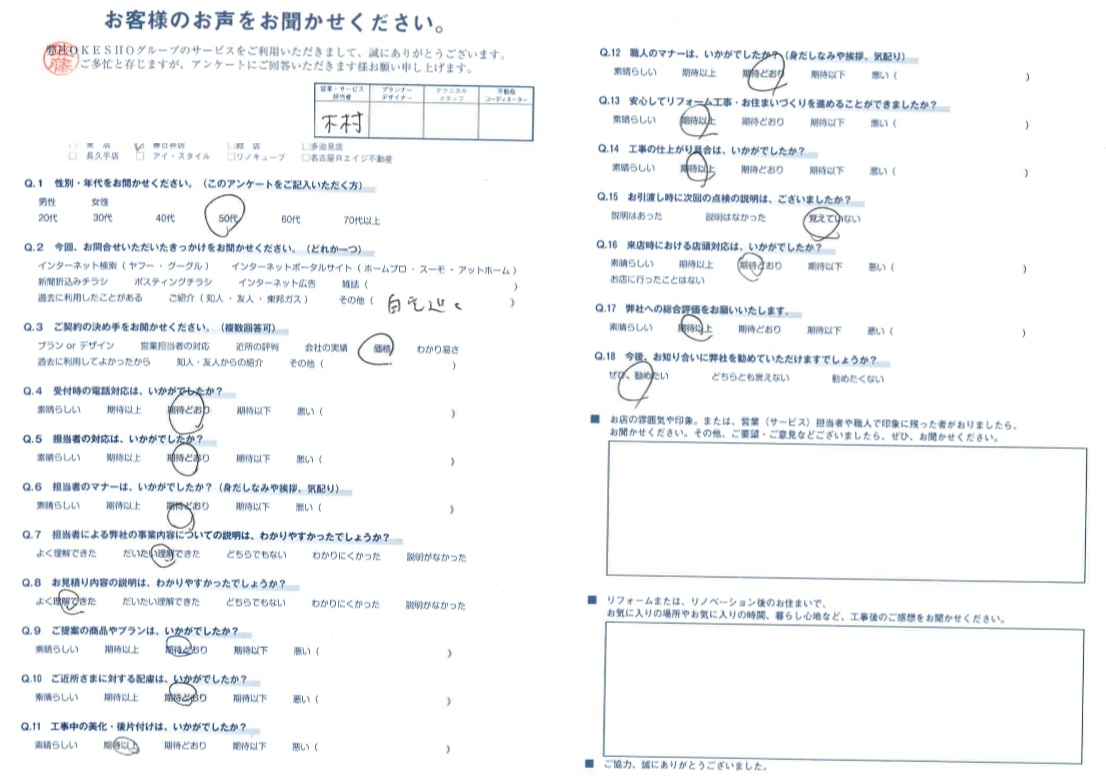 お客様のお声をお聞かせください。
弊社OKESHOグループのサービスをご利用いただきまして、誠にありがとうございます。
ご多忙と存じますが、アンケートにご回答いただきます様お願い申し上げます。
営業・サービス担当者 プランナーデザイナー テクニカルスタッフ 不動産コーディネーター
木村
□ 本店 ☑ 春日井店 □ 緑店 □多治見店
□ 長久手店 □ アイ・スタイル □リノキューブ □名古屋Rエイジ不動産
Q.1 性別・年代をお聞かせください。（このアンケートをご記入いただく方）
男性 女性
20代 30代 40代 50代 60代 70代以上
Q.2 今回、お問合せいただいたきっかけをお聞かせください。（どれか一つ）
インターネット検索（ ヤフー ・ グーグル ） インターネットポータルサイト（ ホームプロ ・ スーモ ・ アットホーム ）
新聞折込みチラシ ポスティングチラシ インターネット広告 雑誌（ ）
過去に利用したことがある ご紹介（ 知人 ・ 友人 ・ 東邦ガス ） その他（ 自宅近く ）
Q.3 ご契約の決め手をお聞かせください。（複数回答可）
プラン or デザイン 営業担当者の対応 近所の評判 会社の実績 価格 わかり易さ
過去に利用してよかったから 知人・友人からの紹介 その他（ ）
Q.4 受付時の電話対応は、いかがでしたか？
素晴らしい 期待以上 期待どおり 期待以下 悪い（ ）
Q.5 担当者の対応は、いかがでしたか？
素晴らしい 期待以上 期待どおり 期待以下 悪い（ ）
Q.6 担当者のマナーは、いかがでしたか？（身だしなみや挨拶、気配り）
素晴らしい 期待以上 期待どおり 期待以下 悪い（ ）
Q.7 担当者による弊社の事業内容についての説明は、わかりやすかったでしょうか？
よく理解できた だいたい理解できた どちらでもない わかりにくかった 説明がなかった
Q.8 お見積り内容の説明は、わかりやすかったでしょうか？
よく理解できた だいたい理解できた どちらでもない わかりにくかった 説明がなかった
Q.9 ご提案の商品やプランは、いかがでしたか？
素晴らしい 期待以上 期待どおり 期待以下 悪い（ ）
Q.10 ご近所さまに対する配慮は、いかがでしたか？
素晴らしい 期待以上 期待どおり 期待以下 悪い（ ）
Q.11 工事中の美化・後片付けは、いかがでしたか？
素晴らしい 期待以上 期待どおり 期待以下 悪い（ ）
Q.12 職人のマナーは、いかがでしたか？（身だしなみや挨拶、気配り）
素晴らしい 期待以上 期待どおり 期待以下 悪い（ ）
Q.13 安心してリフォーム工事・お住まいづくりを進めることができましたか？
素晴らしい 期待以上 期待どおり 期待以下 悪い（ ）
Q.14 工事の仕上がり具合は、いかがでしたか？
素晴らしい 期待以上 期待どおり 期待以下 悪い（ ）
Q.15 お引渡し時に次回の点検の説明は、ございましたか？
説明はあった 説明はなかった 覚えていない
Q.16 来店時における店頭対応は、いかがでしたか？
素晴らしい 期待以上 期待どおり 期待以下 悪い（ ）
お店に行ったことはない
Q.17 弊社への総合評価をお願いいたします。
素晴らしい 期待以上 期待どおり 期待以下 悪い（ ）
Q.18 今後、お知り合いに弊社を勧めていただけますでしょうか？
ぜひ、勧めたい どちらとも言えない 勧めたくない
■ お店の雰囲気や印象。または、営業（サービス）担当者や職人で印象に残った者がおりましたら、
お聞かせください。その他、ご要望・ご意見などございましたら、ぜひ、お聞かせください。
■ リフォームまたは、リノベーション後のお住まいで、
お気に入りの場所やお気に入りの時間、暮らし心地など、工事後のご感想をお聞かせください。
■ ご協力、誠にありがとうございました。